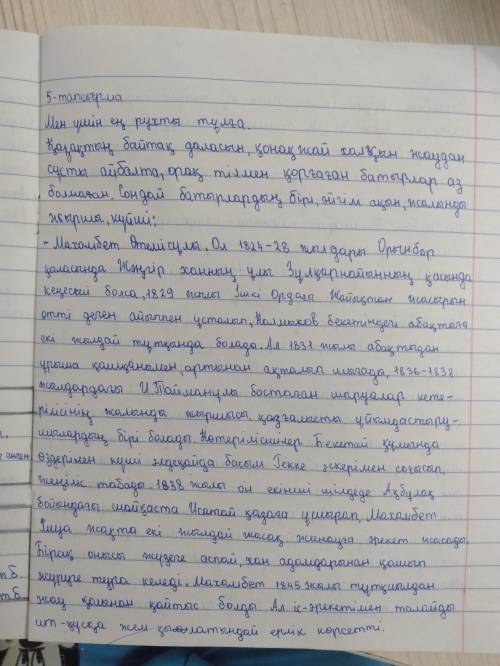 5-тапсырма
Мен үшін ең рухты тұлға.
Қазақтың байтақ даласын, қонақжай халқын жаудан
сұсты айбалта, орақ тілмен қорғаған батырлар аз
болмаған. Сондай батырлардың бірі, әйгілі ақын, жалынды
жыршы, күйші:
- Махамбет Өтемісұлы. Ол 1824-28 жылдары Орынбор
қаласында Жәңгір ханның ұлы Зұлқарнайынның қасында
кеңесші болса, 1829 жылы Ішкі Ордалы Жайықтан жасырын
өтті деген айыппен ұсталып, Калмыков бекетіндегі абақтыға
екі жылдай тұтқында болады. Ал 1831 жылы абақтыдан
ұрлана қашқанымен, артынан ақталып шығады, 1836-1838
жылдардағы И.Тайманұлы бастаған шаруалар көте-
рілісінің жалынды жыршысы, қозғалысты ұйымдастыру-
шылардың бірі болады. Көтерілісшілер Бекетай құмында
өздерінен күші әлдеқайда басым Гекке әскерімен соғысып,
жеңіліс табады. 1838 жылы он екінші шілдеде Ақбұлақ
бойындағы шайқаста Исатай қазаға ұшырап, Махамбет
жақта екі жылдай жасақ жинауға әрекет жасады.
Бірақ онысы жүзеге аспай, хан адамдарынан қашып
жүруге тура келеді. Махамбет 1845 жылы тұтқиылдан
жау қолынан қайтыс болды. Ал іс-әрекетімен талайды
ит-құсқа жем қылатындай ерлік көрсетті.